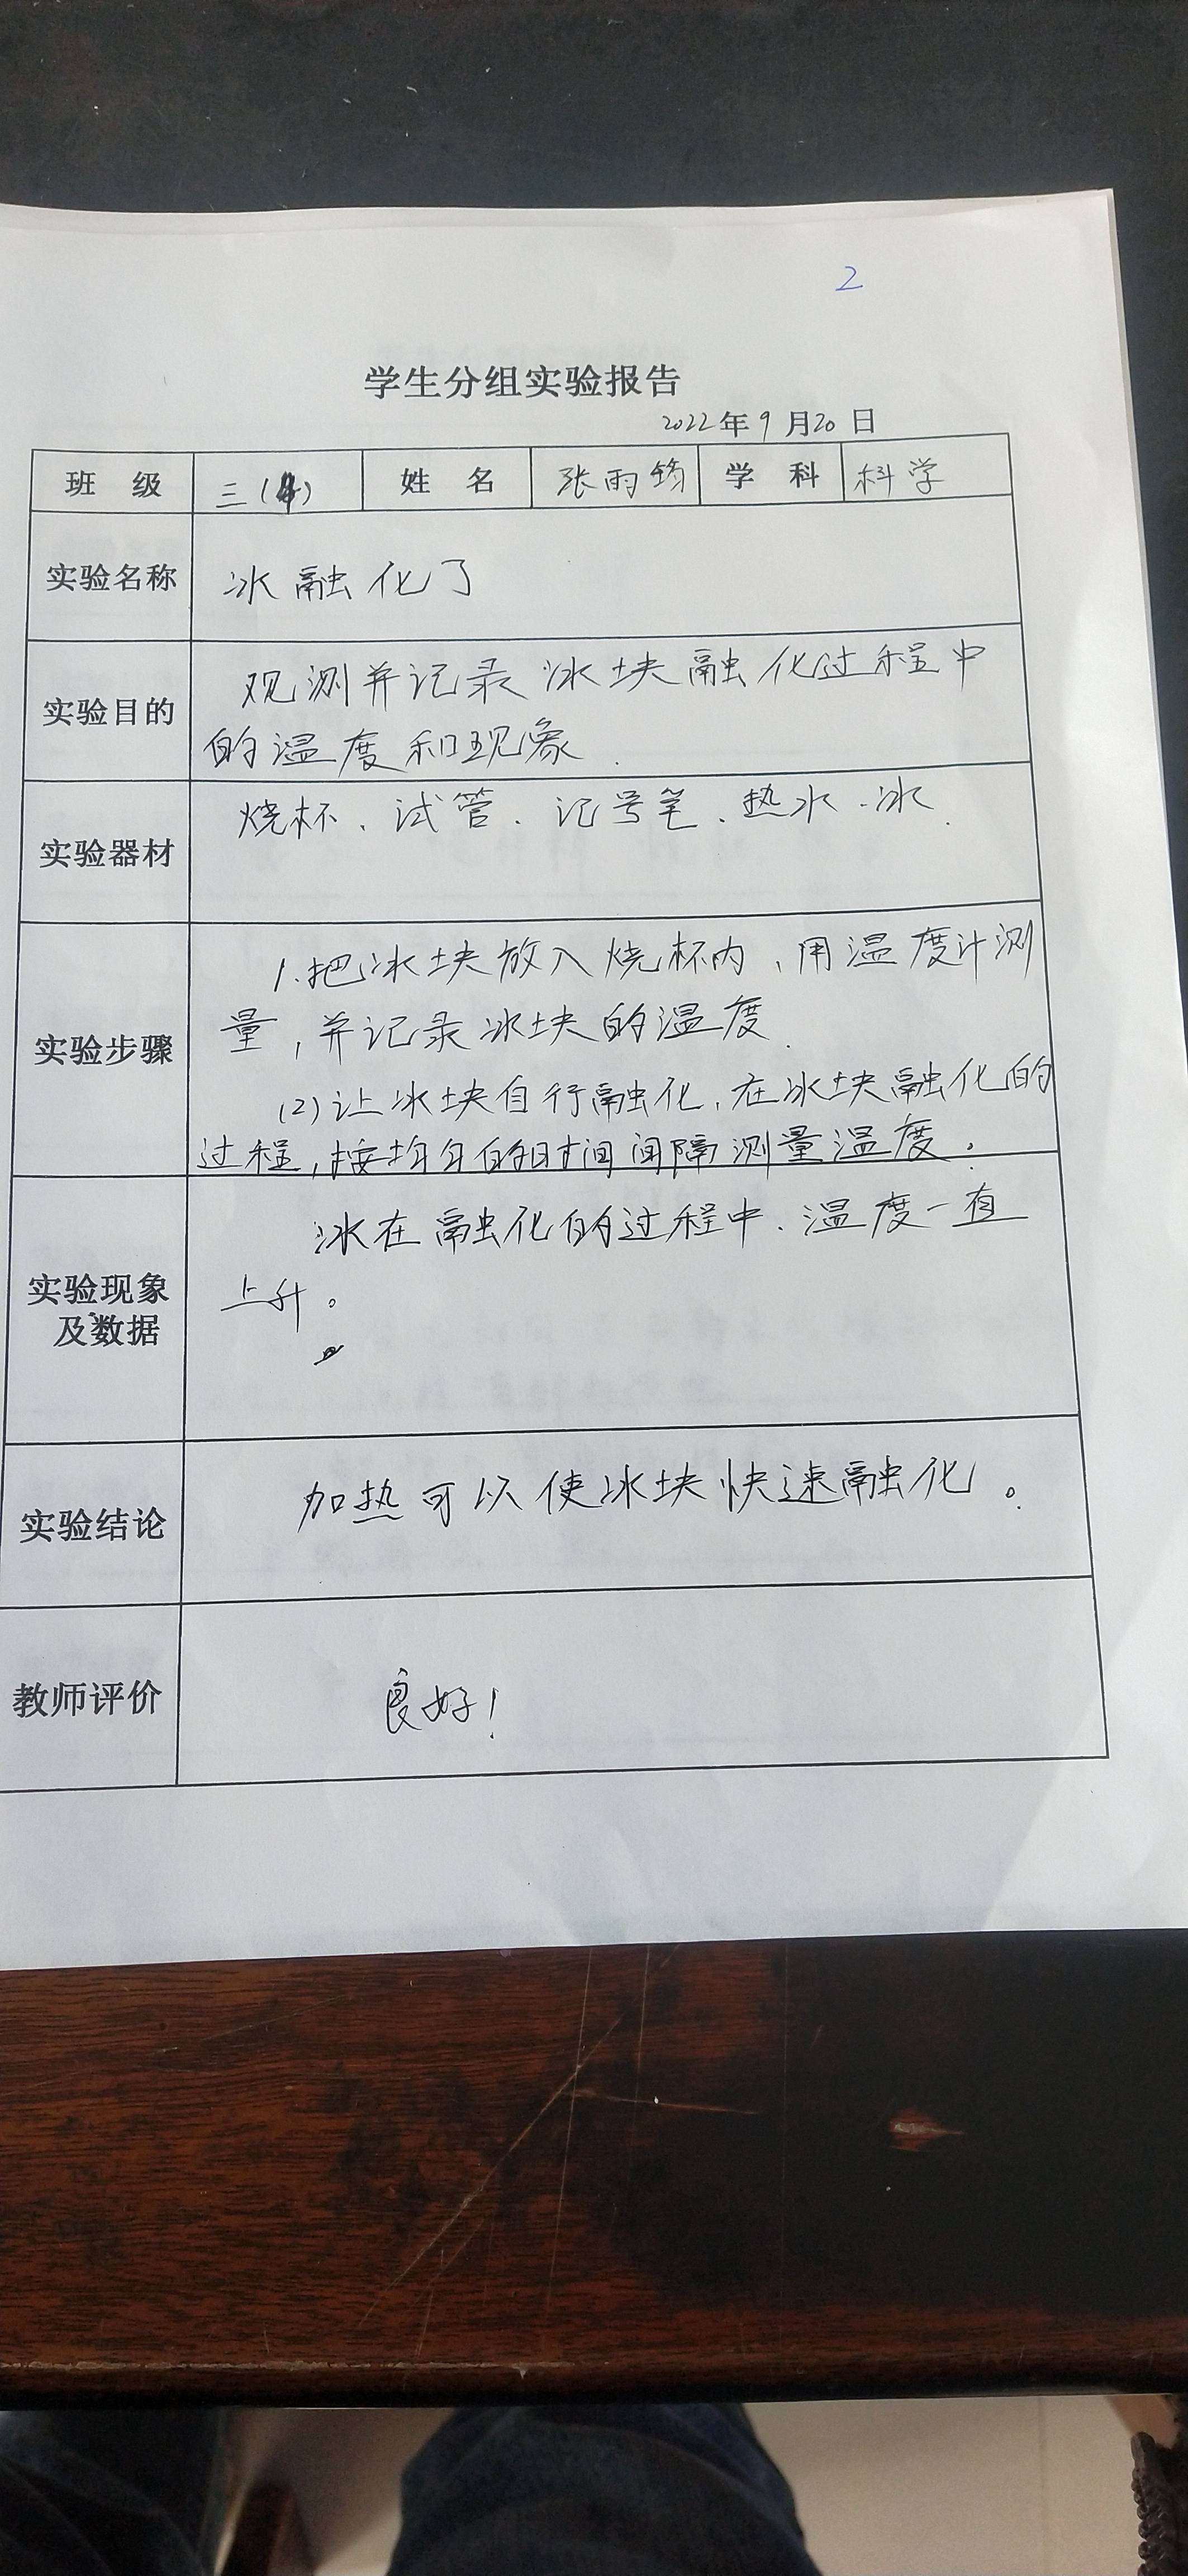 2
学生分组实验报告
2022年9月20日
班 级 三(4) 姓 名 张雨筠 学 科 科学
实验名称 冰融化了
实验目的 观测并记录冰块融化过程中
的温度和现象.
实验器材 烧杯、试管、记号笔、热水、冰.
实验步骤 1.把冰块放入烧杯内、用温度计测
量,并记录冰块的温度.
(2)让冰块自行融化,在冰块融化的
过程,按均匀的时间间隔测量温度。
实验现象
及数据 冰在融化的过程中、温度一直
上升。
实验结论 加热可以使冰块快速融化。
教师评价 良好!